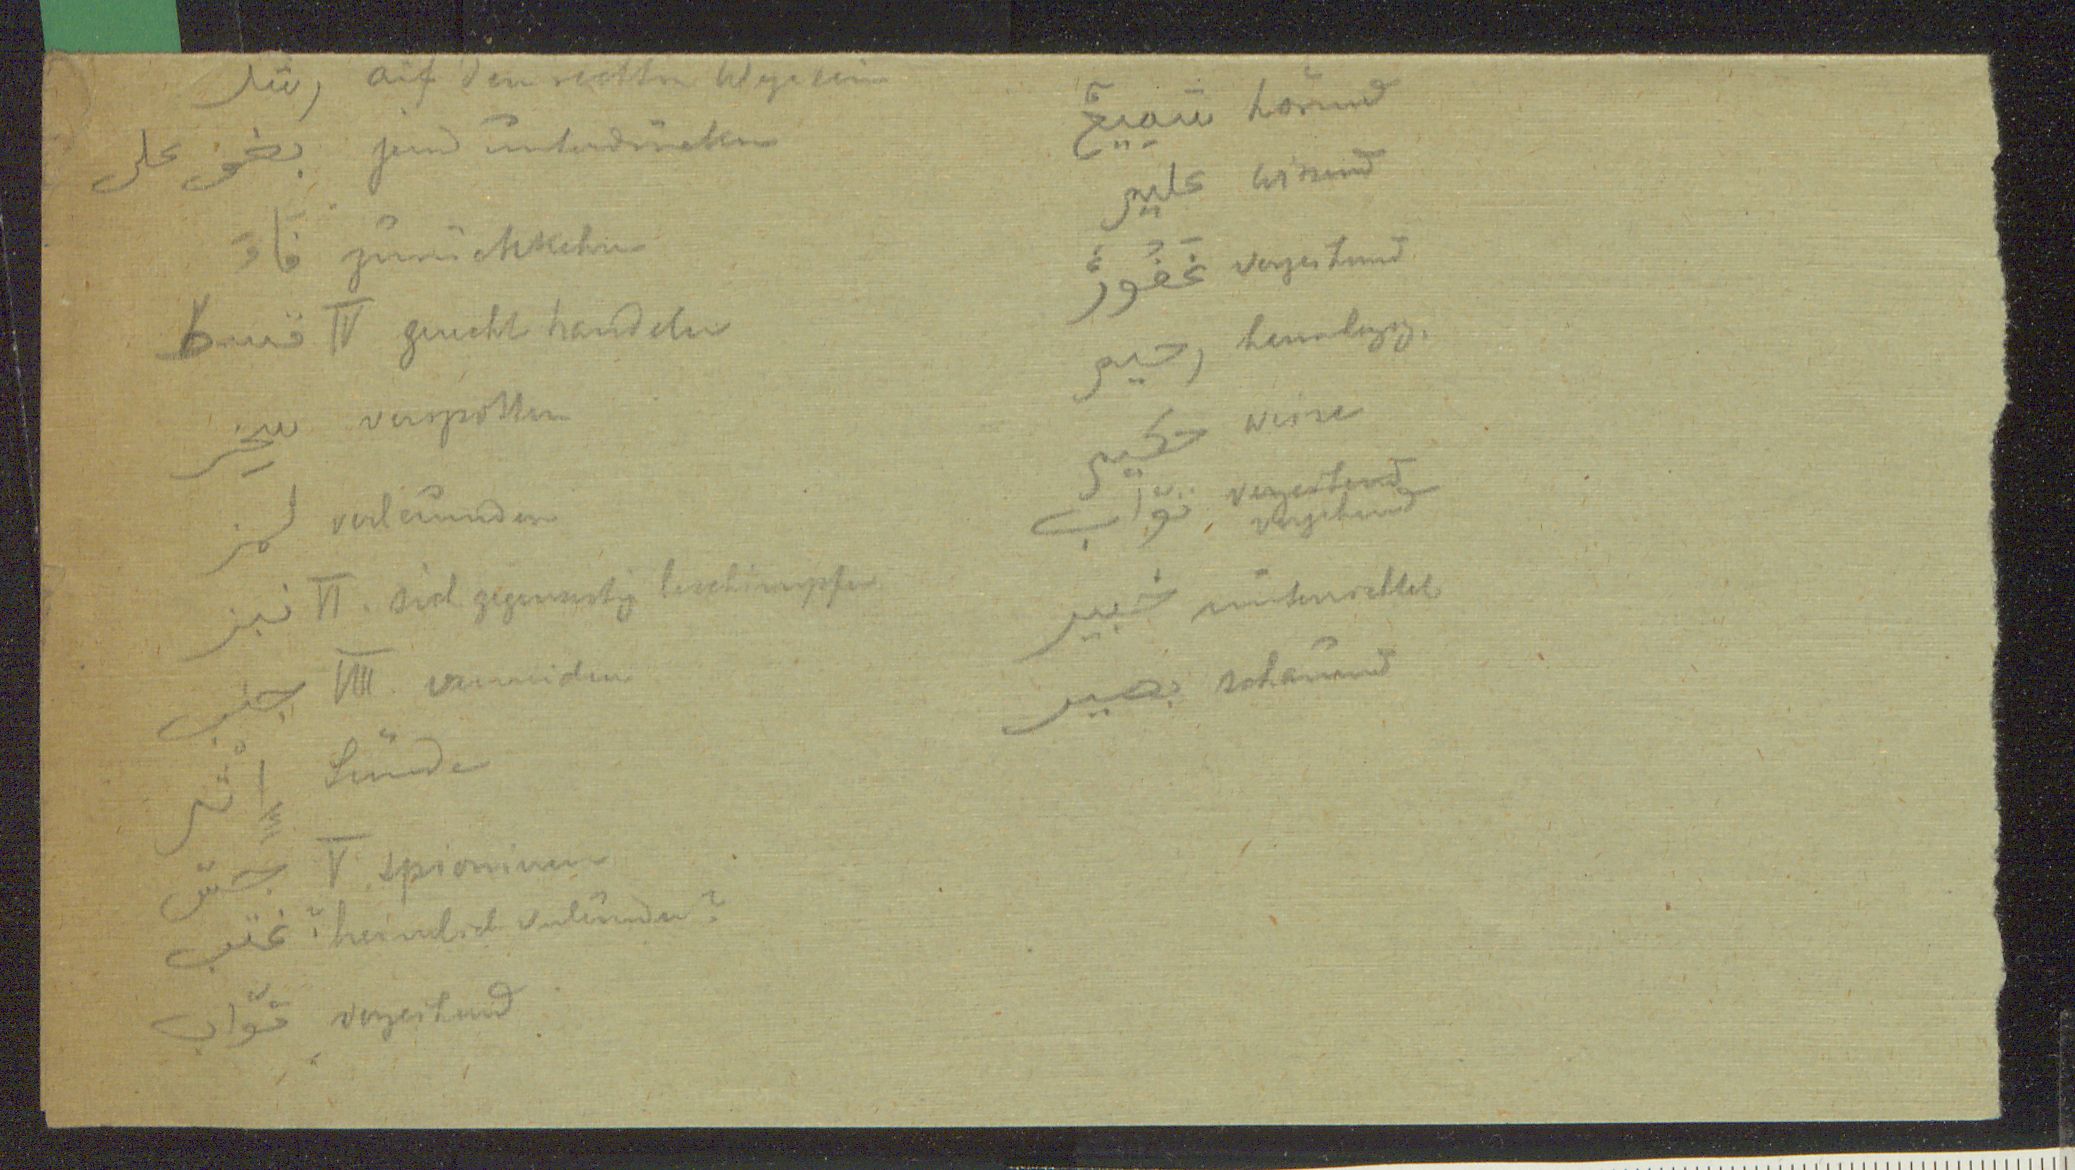 رشد auf den rechten Wege sein
بغى على jemd unterdrücken
فَاءَ zurückkehren
قسط IV gerecht handeln
سخِر verspotten
لمز verleumden
نبز VI. sich gegenseitig beschimpfen
جنب VIII. vermeiden
إِثْم Sünde
جسّ V. spionieren
غتب ? heimlich verleumden?
توّاب verzeihend
سَمِيعٌ hörend
عليم wissend
غَفُورٌ verzeihend
رحيم barmherzig.
حكيم weise
توّاب verzeihend
verzeihend
خبير unterrichtet
بصير schauend